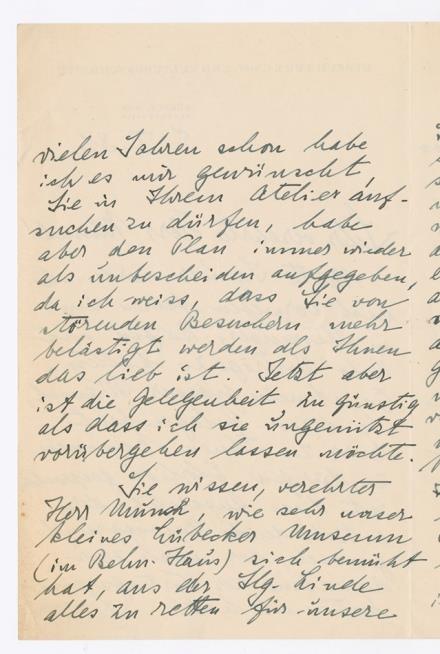 vielen Jahren schon habe
ich es mir gewünscht,
Sie in Ihrem Atelier auf-
suchen zu dürfen, habe
aber den Plan immer wieder
als unbescheiden aufgegeben,
da ich weiss, dass Sie von
störenden Besuchern mehr
belästigt werden als Ihnen
das lieb ist. Jetzt aber
ist die Gelegenheit zu günstig
als dass ich sie ungenützt
vorübergehen lassen möchte.
Sie wissen, verehrter
Herr Munch, wie sehr unser
kleines Lübecker Museum
(im Behn-Haus) sich bemüht
hat, aus der Slg. Linde
alles zu retten für unsere